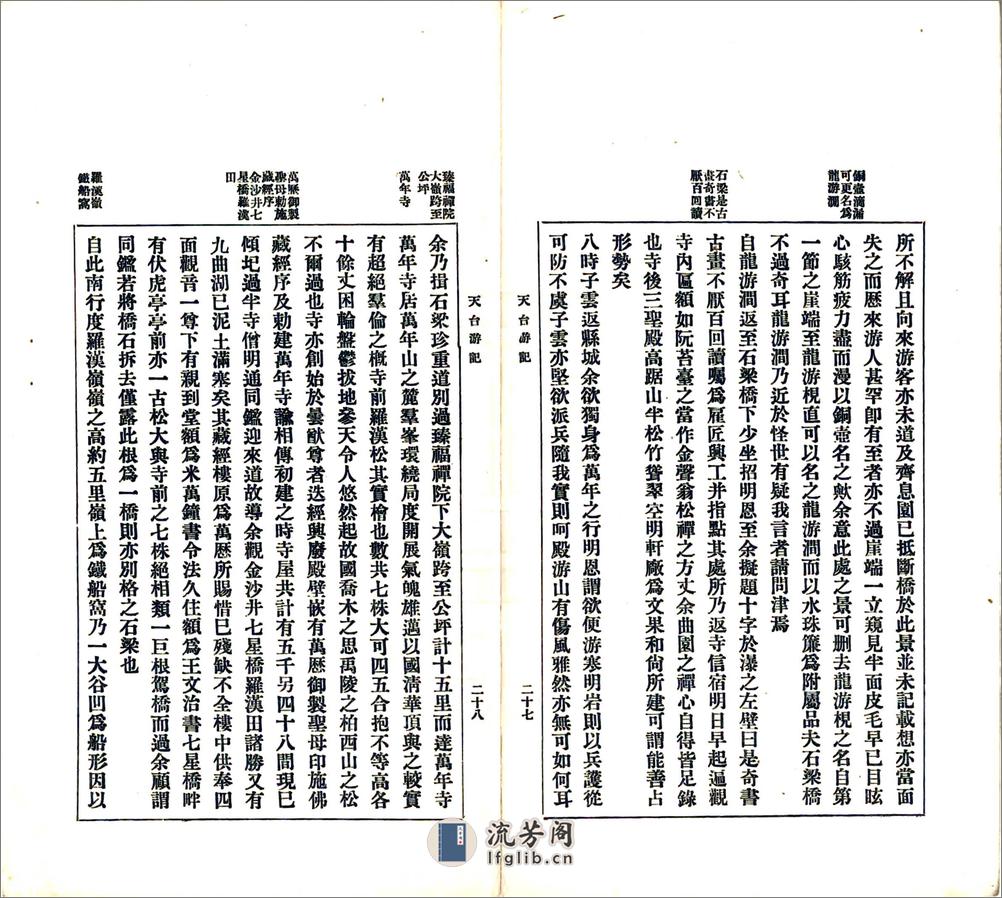 銅壺滴漏
可更名爲
龍游澗
石梁是古
畫奇書不
厭百回讀
所不解且向來游客亦未道及齊息園已抵斷橋於此景並未記載想亦當面
失之而歷來游人甚罕卽有至者亦不過崖端一立窺見半面皮毛早已目眩
心駭筋疲力盡而漫以銅壺名之歟余意此處之景可删去龍游梘之名自第
一節之崖端至龍游梘直可以名之龍游澗而以水珠簾爲附屬品夫石梁橋
不過奇耳龍游澗乃近於怪世有疑我言者請問津焉
自龍游澗返至石梁橋下少坐招明恩至余擬題十字於瀑之左壁曰是奇書
古畫不厭百回讀囑爲雇匠興工并指點其處所乃返寺信宿明日早起遍觀
寺內匾額如阮芸臺之當作金聲翁松禪之方丈余曲園之禪心自得皆足錄
也寺後三聖殿高踞山半松竹聳翠空明軒廠爲文果和尙所建可謂能善占
形勢矣
八時子雲返縣城余欲獨身爲萬年之行明恩謂欲便游寒明岩則以兵護從
可防不虞子雲亦堅欲派兵隨我實則呵殿游山有傷風雅然亦無可如何耳
天台游記
二十七
天台游記
二十八
臻福禪院
大嶺跨至
公坪
萬年寺
萬歷御製
聖母勅施
藏經序
金沙井七
星橋羅漢
田
羅漢嶺
鐵船窩
余乃揖石梁珍重道別過臻福禪院下大嶺跨至公坪計十五里而達萬年寺
萬年寺居萬年山之麓羣峯環繞局度開展氣魄雄邁以國淸華頂與之較實
有超絕羣倫之槪寺前羅漢松其實檜也數共七株大可四五合抱不等高各
十餘丈囷輪盤鬱拔地參天令人悠然起故國喬木之思禹陵之柏西山之松
不爾過也寺亦創始於曇猷尊者迭經興廢殿壁嵌有萬歷御製聖母印施佛
藏經序及勅建萬年寺諭相傳初建之時寺屋共計有五千另四十八間現已
傾圮過半寺僧明通同鑑迎來道故導余觀金沙井七星橋羅漢田諸勝又有
九曲湖已泥土滿塞矣其藏經樓原爲萬歷所賜惜已殘缺不全樓中供奉四
面觀音一尊下有親到堂額爲米萬鐘書令法久住額爲王文治書七星橋畔
有伏虎亭亭前亦一古松大與寺前之七株絕相類一巨根駕橋而過余顧謂
同鑑若將橋石拆去僅露此根爲一橋則亦別格之石梁也
自此南行度羅漢嶺嶺之高約五里嶺上爲鐵船窩乃一大谷凹爲船形因以
流芳阁
lfglib.cn